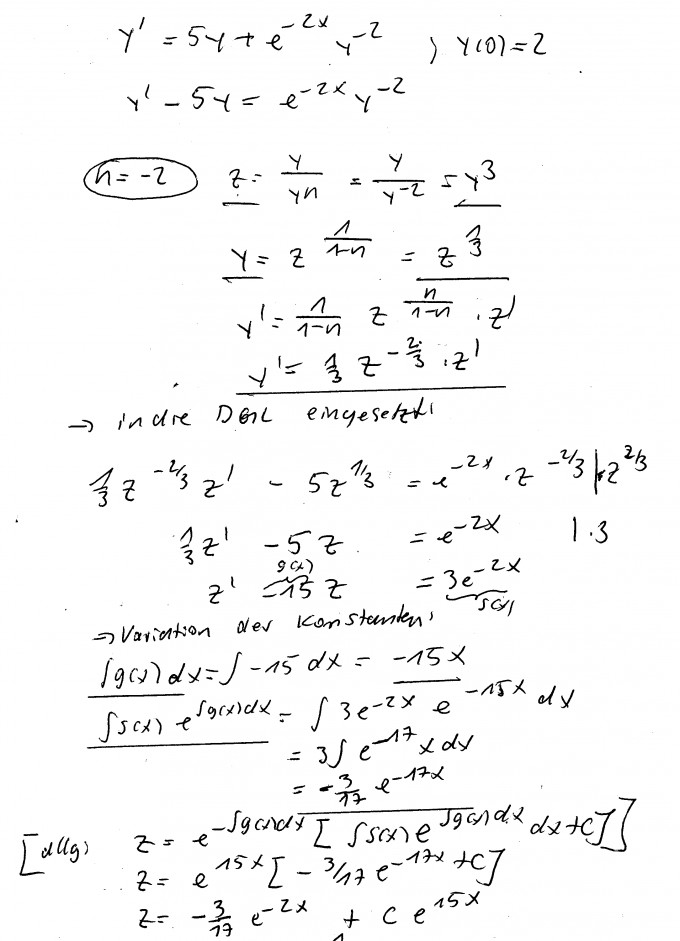 y' = 5y + e^{-2x} y^{-2} ; y(0) = 2
y' - 5y = e^{-2x} y^{-2}
n = -2   z = y/y^n = y/y^{-2} = y^3
y = z^{1/(1-n)} = z^{1/3}
y' = 1/(1-n) z^{n/(1-n)} · z'
y' = 1/3 z^{-2/3} · z'
→ in die DGL eingesetzt:
1/3 z^{-2/3} z' - 5z^{1/3} = e^{-2x} · z^{-2/3} | · z^{2/3}
1/3 z' - 5 z = e^{-2x} | · 3
g(x)
z' - 15 z = 3e^{-2x}
s(x)
⇒ Variation der Konstanten:
∫g(x)dx = ∫ -15 dx = -15x
∫s(x) e^{∫g(x)dx} = ∫ 3e^{-2x} e^{-15x} dx
= 3∫ e^{-17x} dx
= -3/17 e^{-17x}
[allg) z = e^{-∫g(x)dx} [ ∫s(x) e^{∫g(x)dx} dx + C] ]
z = e^{15x} [ -3/17 e^{-17x} + C]
z = -3/17 e^{-2x} + C e^{15x}